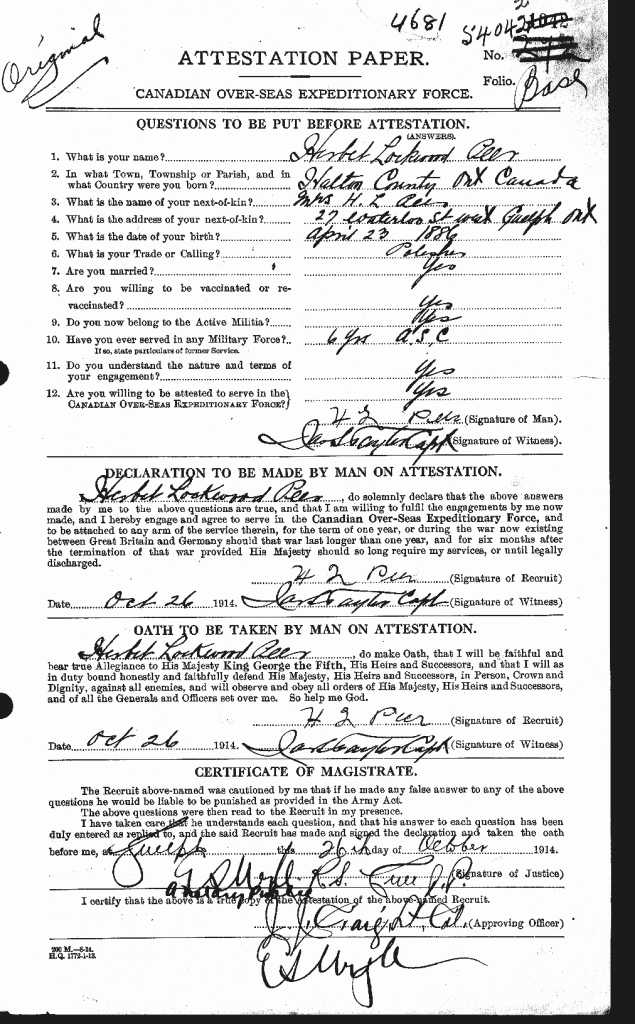 4681
54042
Original
ATTESTATION PAPER.
No.
Folio.
Base
CANADIAN OVER-SEAS EXPEDITIONARY FORCE.
QUESTIONS TO BE PUT BEFORE ATTESTATION.
(ANSWERS).
1. What is your name? Herbet Lockwood Peer
2. In what Town, Township or Parish, and in
what Country were you born? Halton County Ont Canada
3. What is the name of your next-of-kin? Mrs H. L
4. What is the address of your next-of-kin? 27 Waterloo St west Guelph Ont
5. What is the date of your birth? April 23 1886
6. What is your Trade or Calling? Polisher
7. Are you married? Yes
8. Are you willing to be vaccinated or re-
vaccinated? Yes
9. Do you now belong to the Active Militia? Yes
10. Have you ever served in any Military Force? 6 Yrs A.S.C
If so, state particulars of former Service.
11. Do you understand the nature and terms of
your engagement? Yes
12. Are you willing to be attested to serve in the
CANADIAN OVER-SEAS EXPEDITIONARY FORCE? Yes
H L Peer (Signature of Man).
Capt (Signature of Witness).
DECLARATION TO BE MADE BY MAN ON ATTESTATION.
I, Herbet Lockwood Peer, do solemnly declare that the above answers
made by me to the above questions are true, and that I am willing to fulfil the engagements by me now
made, and I hereby engage and agree to serve in the Canadian Over-Seas Expeditionary Force, and
to be attached to any arm of the service therein, for the term of one year, or during the war now existing
between Great Britain and Germany should that war last longer than one year, and for six months after
the termination of that war provided His Majesty should so long require my services, or until legally
discharged.
H L Peer (Signature of Recruit)
Date Oct 26 1914. Capt (Signature of Witness)
OATH TO BE TAKEN BY MAN ON ATTESTATION.
I, Herbet Lockwood Peer, do make Oath, that I will be faithful and
bear true Allegiance to His Majesty King George the Fifth, His Heirs and Successors, and that I will as
in duty bound honestly and faithfully defend His Majesty, His Heirs and Successors, in Person, Crown and
Dignity, against all enemies, and will observe and obey all orders of His Majesty, His Heirs and Successors,
and of all the Generals and Officers set over me. So help me God.
H L Peer (Signature of Recruit)
Date Oct 26 1914. Capt (Signature of Witness)
CERTIFICATE OF MAGISTRATE.
The Recruit above-named was cautioned by me that if he made any false answer to any of the above
questions he would be liable to be punished as provided in the Army Act.
The above questions were then read to the Recruit in my presence.
I have taken care that he understands each question, and that his answer to each question has been
duly entered as replied to, and the said Recruit has made and signed the declaration and taken the oath
before me, at Guelph this 26th day of October 1914.
J.P. (Signature of Justice)
a Notary Public
I certify that the above is a true copy of the Attestation of the above-named Recruit.
Craig Lt. Col. (Approving Officer)
200 M.—8-14.
H.Q. 1772-1-13.